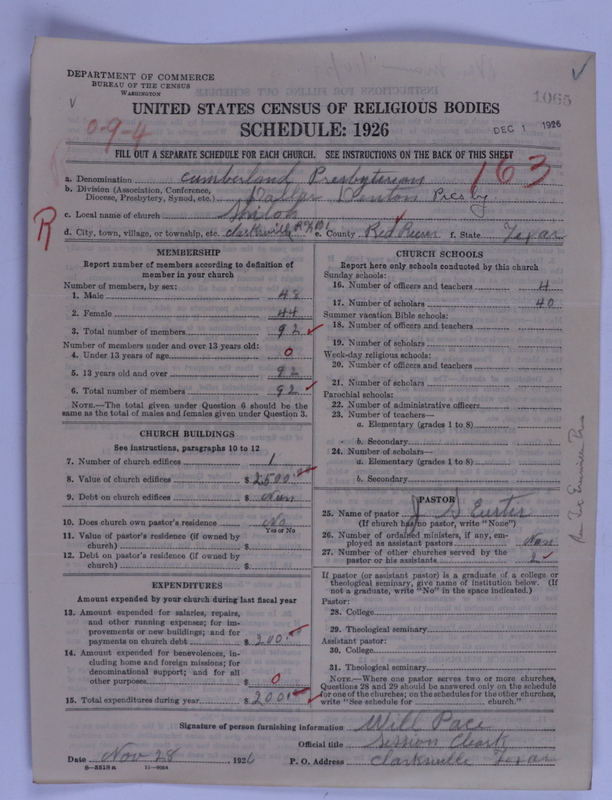 DEPARTMENT OF COMMERCE
BUREAU OF THE CENSUS
WASHINGTON
1065
UNITED STATES CENSUS OF RELIGIOUS BODIES
SCHEDULE: 1926
DEC 1 1926
0-9-4
FILL OUT A SEPARATE SCHEDULE FOR EACH CHURCH. SEE INSTRUCTIONS ON THE BACK OF THIS SHEET
163
a. Denomination Cumberland Presbyterian
b. Division (Association, Conference, Diocese, Presbytery, Synod, etc.) Dallas Denton Presby
c. Local name of church Shiloh
R
d. City, town, village, or township, etc. Clarksville e. County Red River f. State Texas
MEMBERSHIP
Report number of members according to definition of
member in your church
Number of members, by sex:
1. Male 48
2. Female 44
3. Total number of members 92
Number of members under and over 13 years old:
4. Under 13 years of age 0
5. 13 years old and over 92
6. Total number of members 92
NOTE.—The total given under Question 6 should be the
same as the total of males and females given under Question 3.
CHURCH BUILDINGS
See instructions, paragraphs 10 to 12
7. Number of church edifices 1
8. Value of church edifices $ 2,500
9. Debt on church edifices $ Nun
10. Does church own pastor's residence No
Yes or No
11. Value of pastor's residence (if owned by
church) $
12. Debt on pastor's residence (if owned by
church) $
EXPENDITURES
Amount expended by your church during last fiscal year
13. Amount expended for salaries, repairs,
and other running expenses; for im-
provements or new buildings; and for
payments on church debt $ 200
14. Amount expended for benevolences, in-
cluding home and foreign missions; for
denominational support; and for all
other purposes $ 0
15. Total expenditures during year $ 200
CHURCH SCHOOLS
Report here only schools conducted by this church
Sunday schools:
16. Number of officers and teachers 4
17. Number of scholars 40
Summer vacation Bible schools:
18. Number of officers and teachers
19. Number of scholars
Week-day religious schools:
20. Number of officers and teachers
21. Number of scholars
Parochial schools:
22. Number of administrative officers
23. Number of teachers—
a. Elementary (grades 1 to 8)
b. Secondary
24. Number of scholars—
a. Elementary (grades 1 to 8)
b. Secondary
PASTOR
25. Name of pastor J S Eustis
(If church has no pastor, write "None")
26. Number of ordained ministers, if any, em-
ployed as assistant pastors Non
27. Number of other churches served by the
pastor or his assistants 2
If pastor (or assistant pastor) is a graduate of a college or
theological seminary, give name of institution below. (If
not a graduate, write "No" in the space indicated.)
Pastor:
28. College
29. Theological seminary
Assistant pastor:
30. College
31. Theological seminary
NOTE.—Where one pastor serves two or more churches,
Questions 28 and 29 should be answered only on the schedule
for one of the churches; on the schedules for the other churches,
write "See schedule for church."
Signature of person furnishing information Will Pace
Official title Session Clerk
Date Nov 28, 1926 P. O. Address Clarksville Texas
8—5518a 11—9084